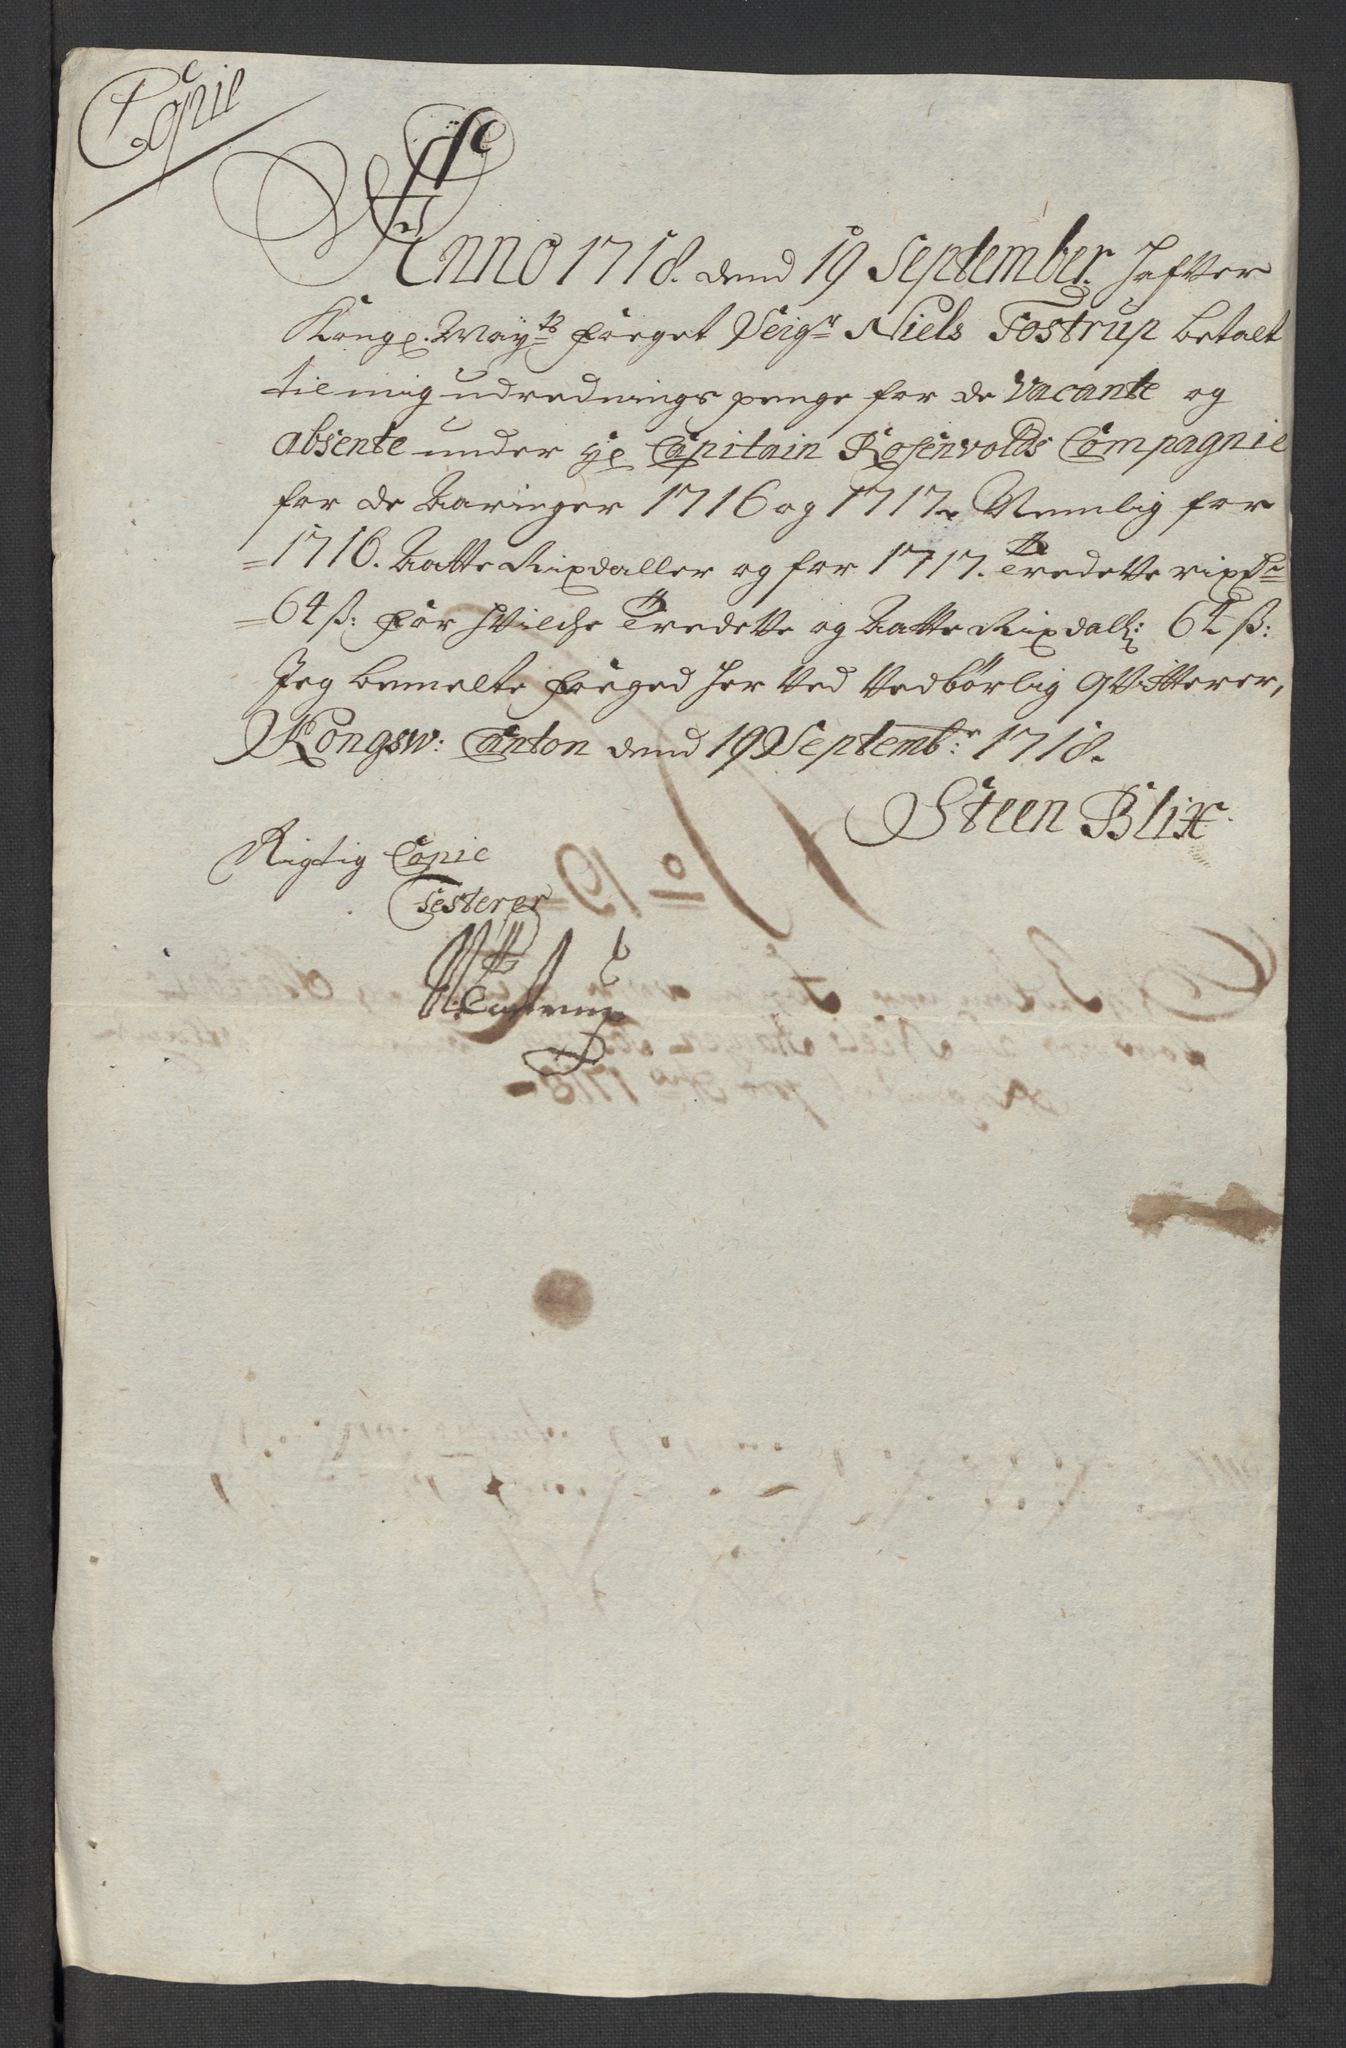 Copie
Anno 1718. dend 19 September. Hafver
Kongl. May.ts foeget Seig.r Niels Tostrup betalt
til mig udrednings penge for de Vacante og
absente under Hr Capitain Rosenvolds Compagnie
for de Aaringer 1716 og 1717. Nemlig for
=1716. Aatte Rixdaller og for 1717. Tredette rixd.r
=64 ß: for Hvilche Tredette og Aatte Rixdall: 64 ß:
Jeg bemelte foeged Her Ved Vedbørlig qVitterer,
Kongsw: Canton dend 19 Septemb:r 1718.
Steen Blix
Rigtig Copie
Testerer
NTostrup
No 19